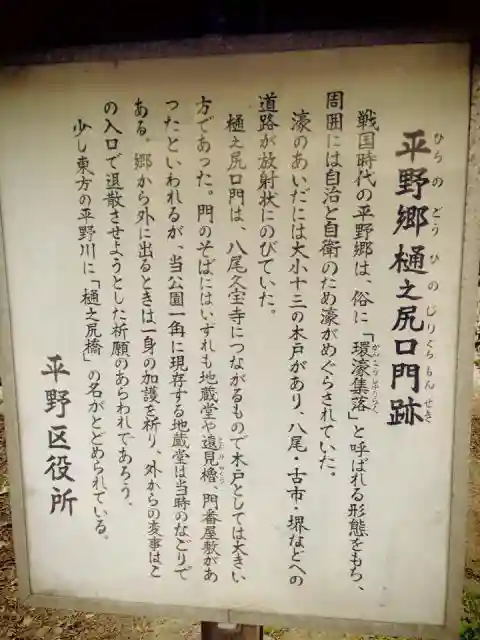 平野郷樋之尻口門跡
ひらのごうひのじりぐちもんせき
戦国時代の平野郷は、俗に「環濠集落」と呼ばれる形態をもち、
かんごうしゅうらく
周囲には自治と自衛のため濠がめぐらされていた。
濠のあいだには大小十三の木戸があり、八尾・古市・堺などへの
道路が放射状にのびていた。
樋之尻口門は、八尾久宝寺につながるもので木戸としては大きい
方であった。門のそばにはいずれも地蔵堂や遠見櫓、門番屋敷があ
とおみやぐら
ったといわれるが、当公園一角に現存する地蔵堂は当時のなごりで
ある。郷から外に出るときは一身の加護を祈り、外からの変事はこ
の入口で退散させようとした祈願のあらわれであろう。
少し東方の平野川に「樋之尻橋」の名がとどめられている。
平野区役所